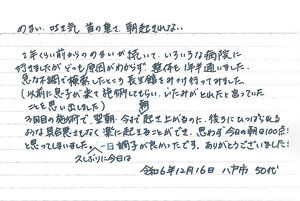 めまい、吐き気、首の重さ、朝起きれない
2年くらい前からのめまいが続いて、いろいろな病院に
行きましたがどこも原因がわからず、整体も1年半通いました。
息子を調べて検索したところ長生館をみつけ行ってみました
(以前に息子が楽で施術してもらい、いたみがとれたと言っていた
ことも思い出しました)
3回目の施術で、翌朝、今まで起き上がるのに、後ろにひっぱられる
ような具合悪さもなく楽に起きることができ、思わず今日の朝は100点!
と思ってしまいました 一日調子が良かったです。ありがとうございました!
久しぶりに今日は
令和6年12月16日 八戸市 50代